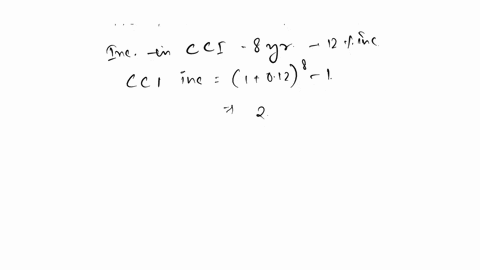 Inc. in CCI - 8 yr - 12 % inc
CCI inc = (1 + 0.12)^8 - 1.
⇒ 2